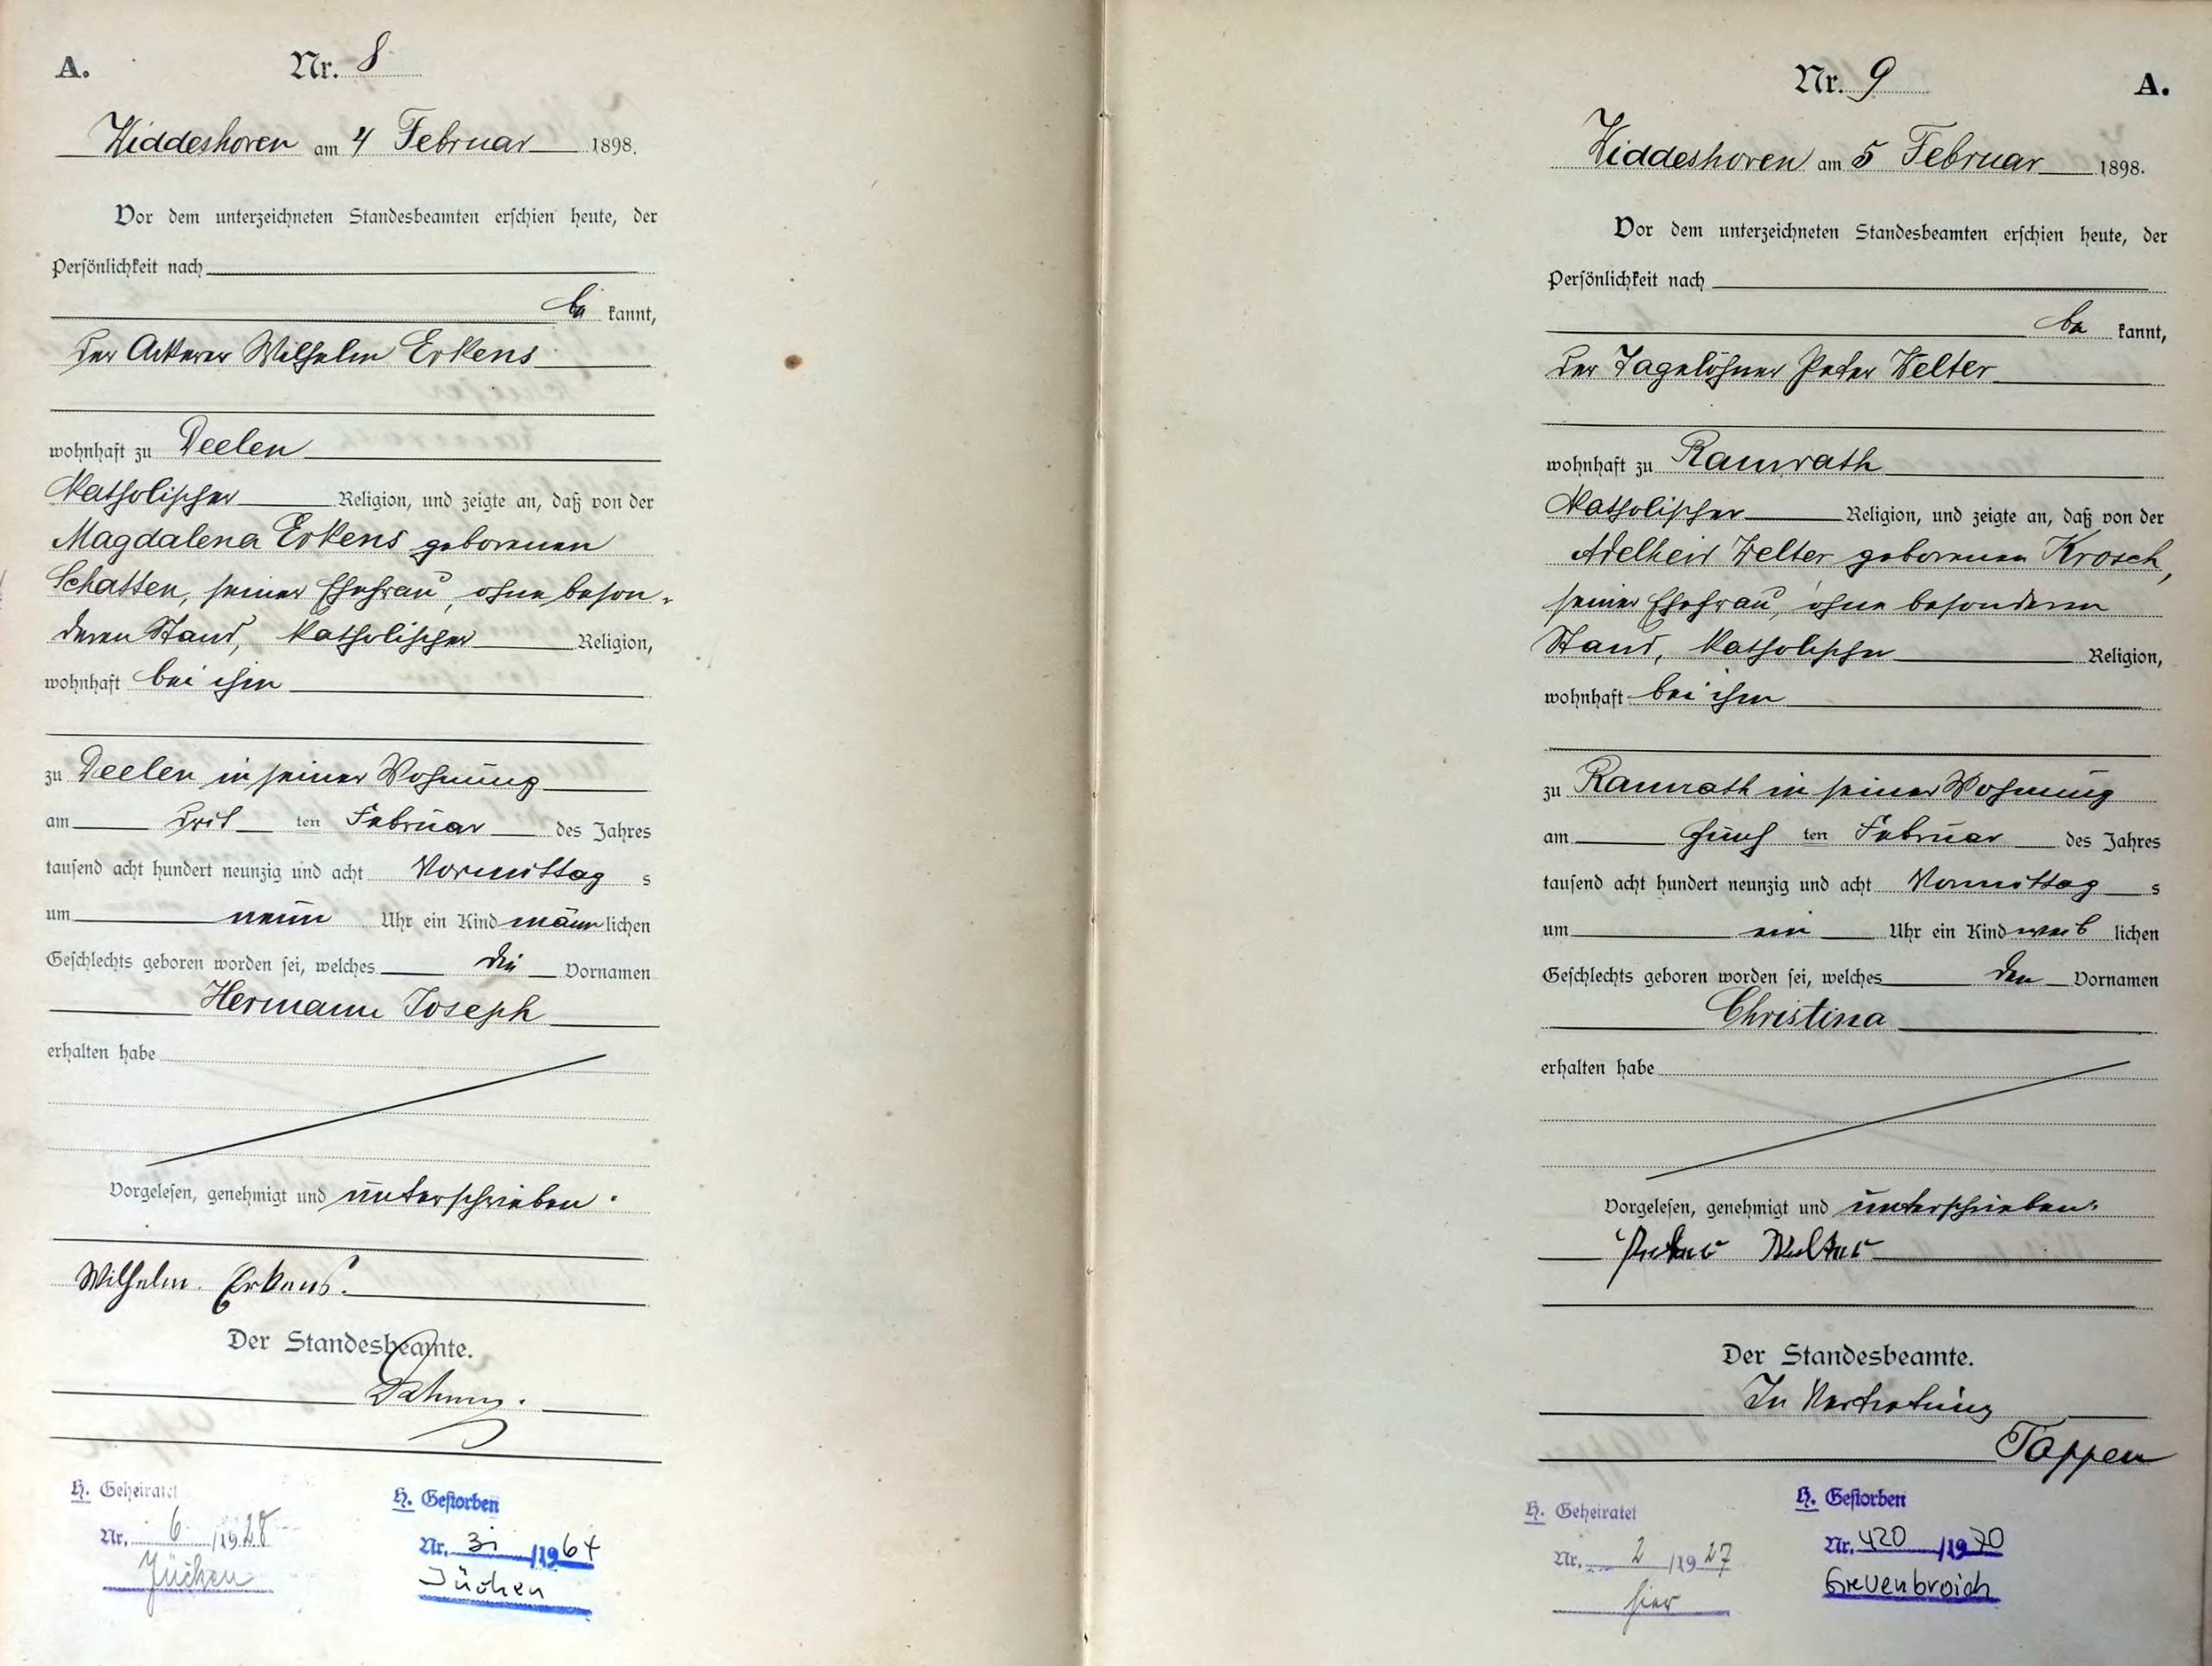 A. Nr. 8
Widdeshoven am 4 Februar 1898.
Vor dem unterzeichneten Standesbeamten erschien heute, der
Persönlichkeit nach
be kannt,
der Ackerer Wilhelm Erkens
wohnhaft zu Deelen
katholischer Religion, und zeigte an, daß von der
Magdalena Erkens geborenen
Schatten, seiner Ehefrau, ohne beson-
deren Stand, katholischer Religion,
wohnhaft bei ihm
zu Deelen in seiner Wohnung
am drit ten Februar des Jahres
tausend acht hundert neunzig und acht Vormittag s
um neun Uhr ein Kind männ lichen
Geschlechts geboren worden sei, welches die Vornamen
Hermann Joseph
erhalten habe
Vorgelesen, genehmigt und unterschrieben.
Wilhelm Erkens.
Der Standesbeamte.
H. Geheiratet
Nr. 6 /1928
Jüchen
H. Gestorben
Nr. 31 /1964
Jüchen
Nr. 9 A.
Widdeshoven am 5 Februar 1898.
Vor dem unterzeichneten Standesbeamten erschien heute, der
Persönlichkeit nach
be kannt,
der Tagelöhner Peter Welter
wohnhaft zu Ramrath
katholischer Religion, und zeigte an, daß von der
Adelheid Welter geborenen Krosch,
seiner Ehefrau, ohne besonderen
Stand, katholischer Religion,
wohnhaft bei ihm
zu Ramrath in seiner Wohnung
am fünf ten Februar des Jahres
tausend acht hundert neunzig und acht Vormittag s
um ein Uhr ein Kind weib lichen
Geschlechts geboren worden sei, welches den Vornamen
Christina
erhalten habe
Vorgelesen, genehmigt und unterschrieben.
Peter Welter
Der Standesbeamte.
In Vertretung
Tappen
H. Geheiratet
Nr. 2 /1927
hier
H. Gestorben
Nr. 420 /1970
Grevenbroich